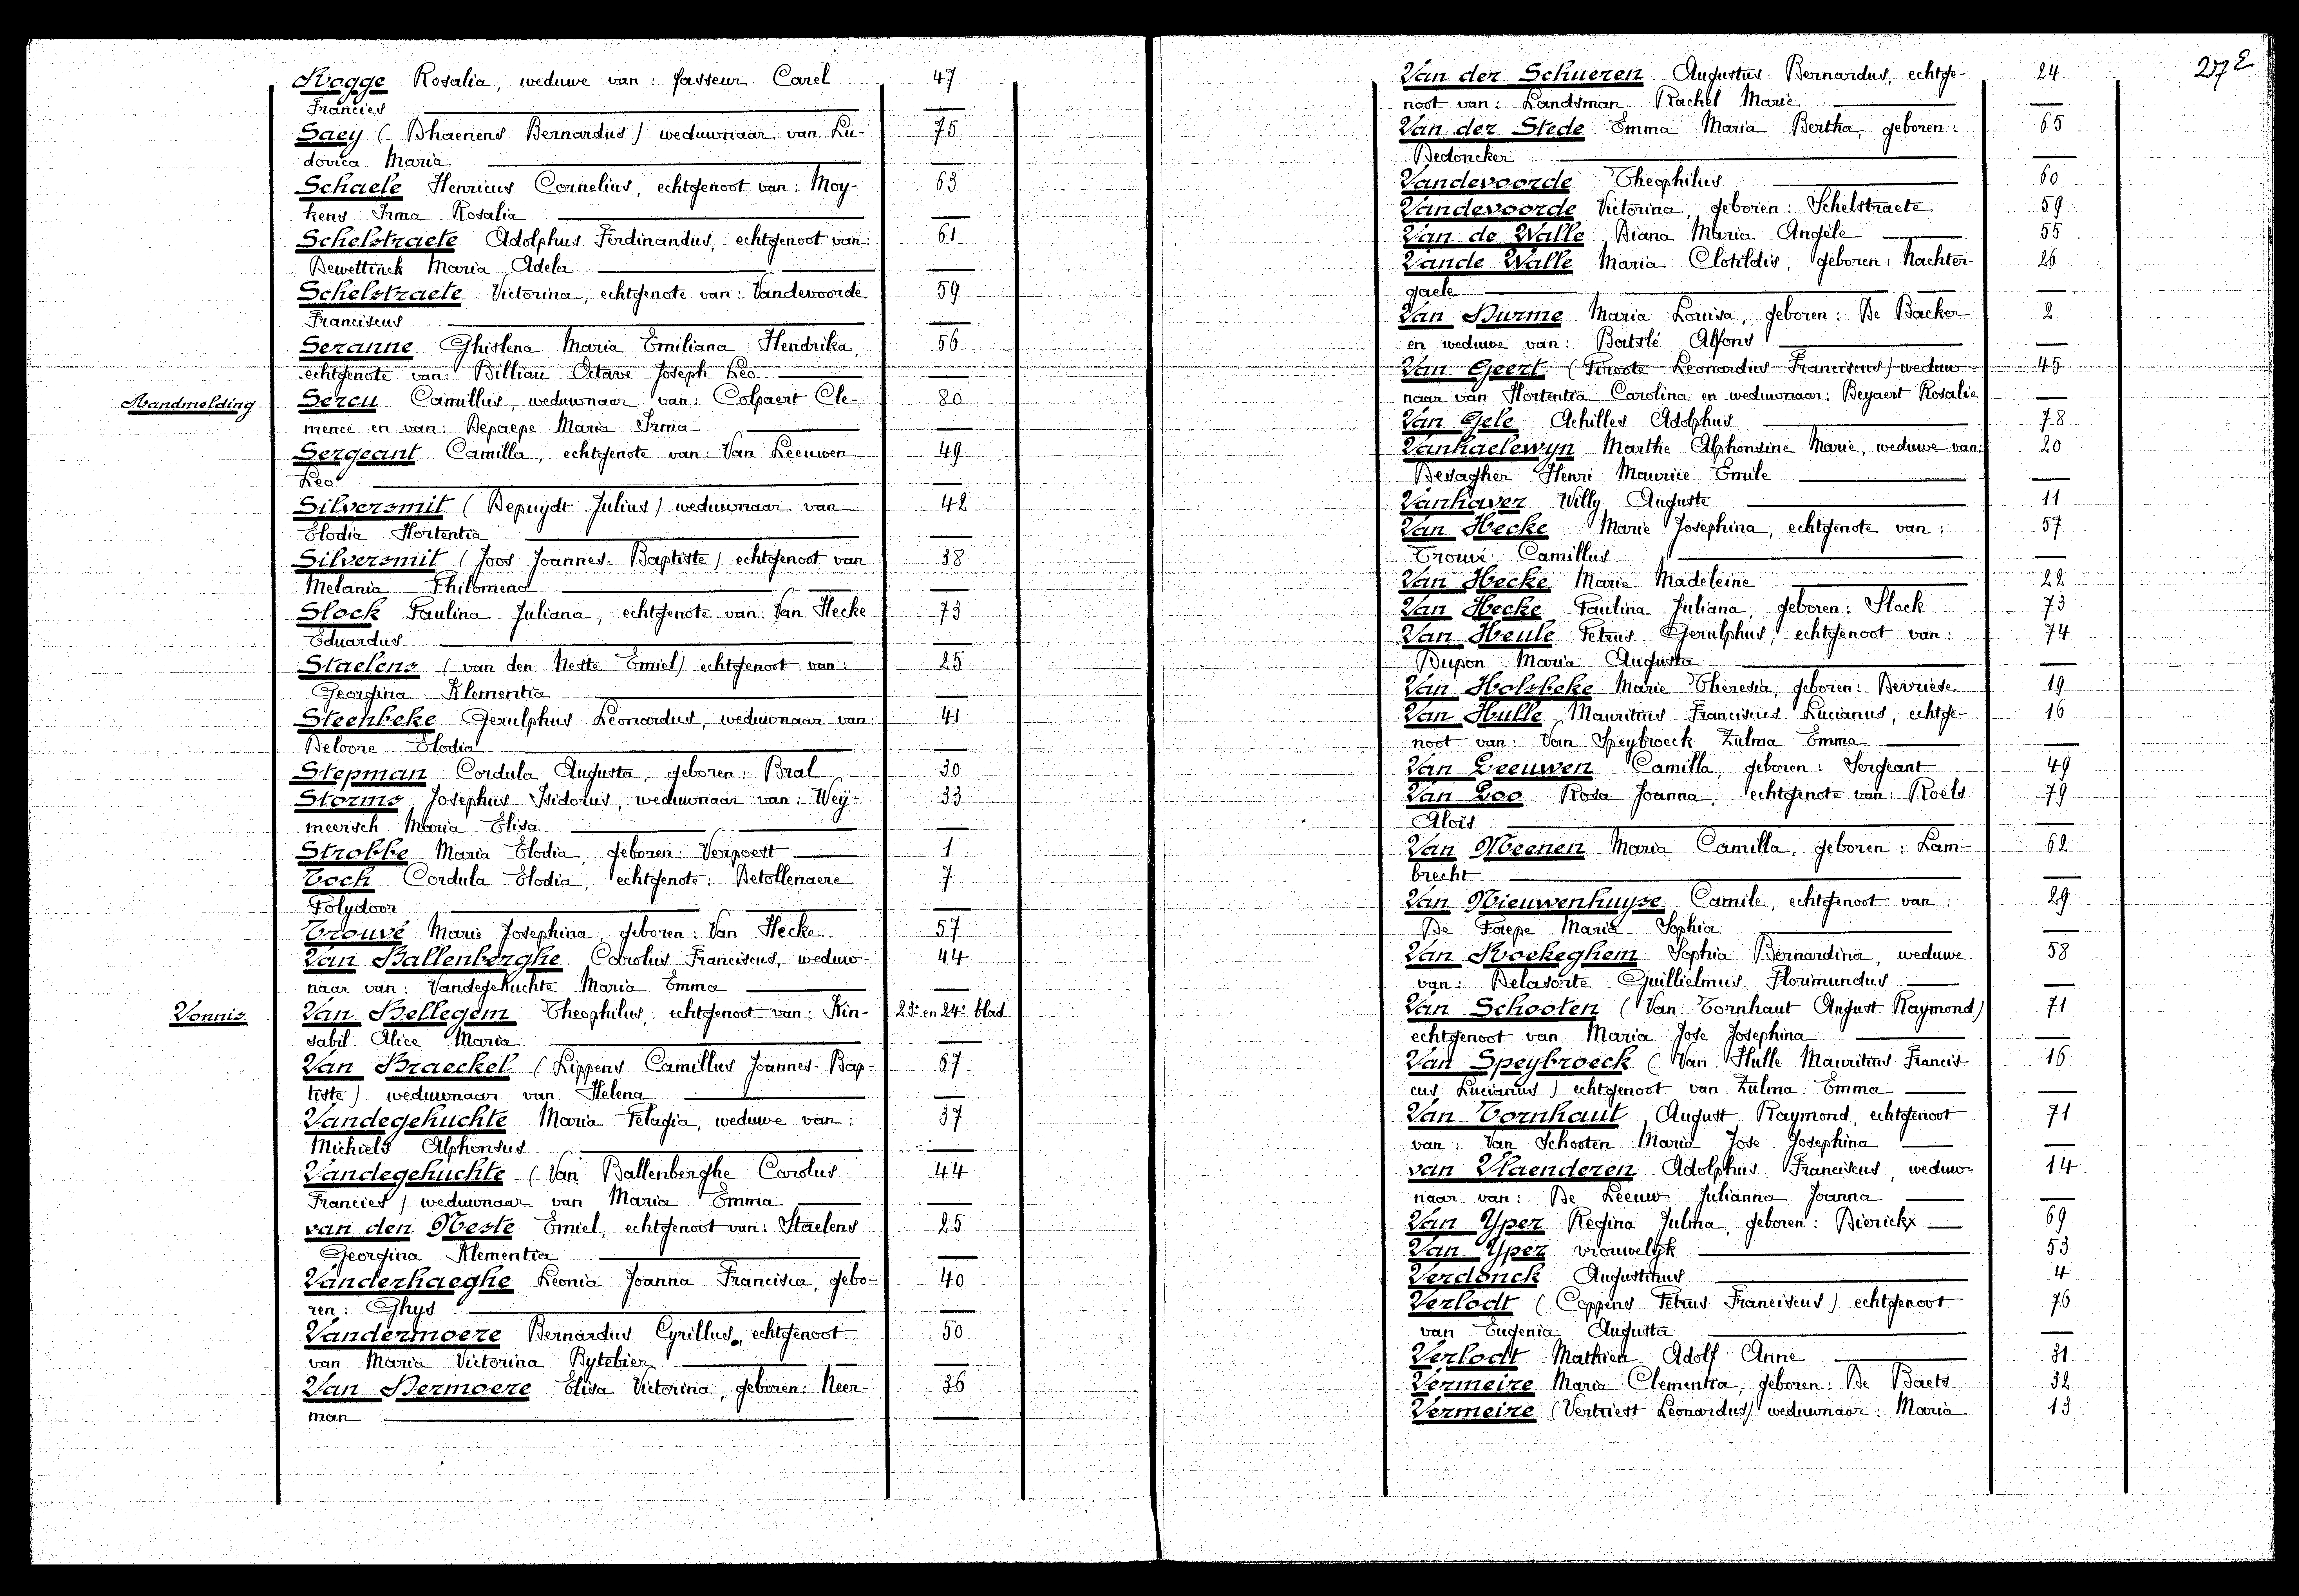 Rogge Rosalia, weduwe van: Passeur Carel 47
Francies
Saey (Dhaenens Bernardus) weduwnaar van Lu- 75
dovica Maria
Schaele Henricus Cornelius, echtgenoot van: Moy- 63
kens Irma Rosalia
Schelstraete Adolphus Ferdinandus, echtgenoot van: 61
Dewettinck Maria Adela
Schelstraete Victorina, echtgenote van: Vandevoorde 59
Franciscus
Seranne Ghislena Maria Emiliana Hendrika, 56
echtgenote van: Billiau Octave Joseph Leo
Randmelding Sercu Camillus, weduwnaar van: Colpaert Cle- 80
mence en van: Depaepe Maria Irma
Sergeant Camilla, echtgenote van: Van Leeuwen 49
Leo
Silversmit (Depuydt Julius) weduwnaar van 42
Elodia Hortentia
Silversmit (Joos Joannes-Baptiste) echtgenoot van 38
Melania Philomena
Slock Paulina Juliana, echtgenote van: Van Hecke 73
Eduardus
Staelens (van den Neste Emiel) echtgenoot van: 25
Georgina Klementia
Steenbeke Gerulphus Leonardus, weduwnaar van: 41
Deloore Elodia
Stepman Cordula Augusta, geboren: Bral 30
Storms Josephus Isidorus, weduwnaar van: Weÿ- 33
meersch Maria Elisa
Strobbe Maria Elodia, geboren: Verpoest 1
Toch Cordula Elodia, echtgenote: Detollenaere 7
Polydoor
Trouvé Marie Josephina, geboren: Van Hecke 57
Van Ballenberghe Carolus Franciscus, weduw- 44
naar van: Vandegehuchte Maria Emma
Vonnis Van Bellegem Theophilus, echtgenoot van: Kin- 23e en 24e blad
sabil Alice Maria
Van Braeckel (Lippens Camillus Joannes-Bap- 67
tiste) weduwnaar van Helena
Vandegehuchte Maria Pelagia, weduwe van: 37
Michiels Alphonsus
Vandegehuchte (Van Ballenberghe Carolus 44
Francies) weduwnaar van Maria Emma
van den Neste Emiel, echtgenoot van: Staelens 25
Georgina Klementia
Vanderhaeghe Leonia Joanna Francisca, gebo- 40
ren: Ghys
Vandermoere Bernardus Cyrillus, echtgenoot 50
van Maria Victorina Bytebier
Van Dermoere Elisa Victorina, geboren: Neer- 36
man
27e
Van der Schueren Augustus Bernardus, echtge- 24
noot van: Landsman Rachel Marie
Van der Stede Emma Maria Bertha, geboren: 65
Dedoncker
Vandevoorde Theophilus 60
Vandevoorde Victorina, geboren: Schelstraete 59
Van de Walle Diana Maria Angèle 55
Vande Walle Maria Clotildis, geboren: Nachter- 26
gaele
Van Durme Maria Louisa, geboren: De Backer 2
en weduwe van: Batslé Alfons
Van Geert (Piroote Leonardus Franciscus) weduw- 45
naar van Hortentia Carolina en weduwnaar: Beyaert Rosalie
Van Gele Achilles Adolphus 78
Vanhaelewyn Marthe Alphonsine Marie, weduwe van: 20
Desagher Henri Maurice Emile
Vanhaver Willy Auguste 11
Van Hecke Marie Josephina, echtgenote van: 57
Trouvé Camillus
Van Hecke Marie Madeleine 22
Van Hecke Paulina Juliana, geboren: Slock 73
Van Heule Petrus Gerulphus, echtgenoot van: 74
Dupon Maria Augusta
Van Holsbeke Marie Theresia, geboren: Devriese 19
Van Hulle Mauritius Franciscus Lucianus, echtge- 16
noot van: Van Speybroeck Zulma Emma
Van Leeuwen Camilla, geboren: Sergeant 49
Van Loo Rosa Joanna, echtgenote van: Roels 79
Aloïs
Van Meenen Maria Camilla, geboren: Lam- 62
brecht
Van Nieuwenhuyse Camile, echtgenoot van: 29
De Paepe Maria Sophia
Van Rockeghem Sophia Bernardina, weduwe 58
van: Delasorte Guillielmus Florimundus
Van Schooten (Van Tornhaut August Raymond) 71
echtgenoot van Maria Jose Josephina
Van Speybroeck (Van Hulle Mauritius Francis- 16
cus Lucianus) echtgenoot van Zulma Emma
Van Tornhaut August Raymond, echtgenoot 71
van: Van Schooten Maria Jose Josephina
van Vlaenderen Adolphus Franciskus, weduw- 14
naar van: De Leeuw Julianna Joanna
Van Yper Regina Julma, geboren: Dierickx 69
Van Yper vrouwelijk 53
Verdonck Augustinus 4
Verlodt (Coppens Petrus Franciscus) echtgenoot 76
van Eugenia Augusta
Verlodt Mathieu Adolf Anne 31
Vermeire Maria Clementia, geboren: De Baets 32
Vermeire (Vertriest Leonardus) weduwnaar: Maria 13